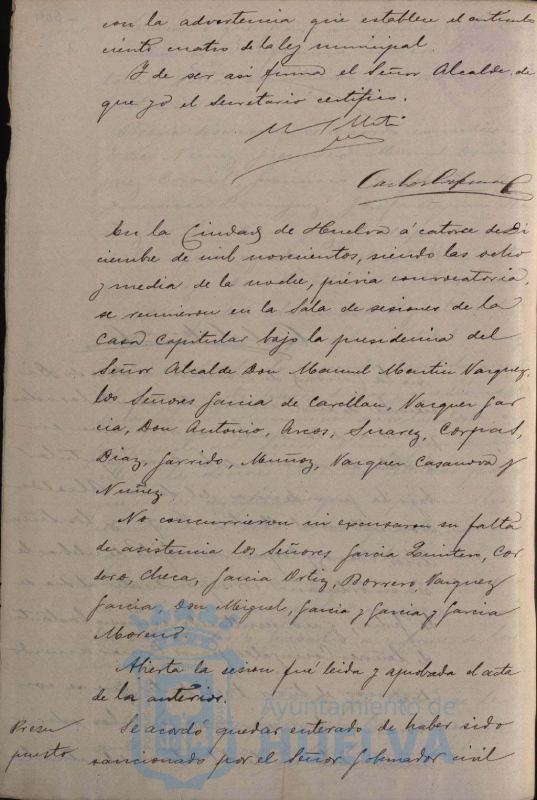 con la advertencia que establece el articulo
ciento cuatro de la ley municipal.
Y de ser asi firma el Señor Alcalde, de
que yo el Secretario certifico.
En la Ciudad de Huelva á catorce de Di
ciembre de mil novecientos, siendo las ocho
y media de la noche, prévia convocatoria,
se reunieron en la Sala de sesiones de la
Casa Capitular bajo la presidencia del
Señor Alcalde Don Manuel Martin Vazquez,
los Señores Garcia de Carellan, Vazquez Gar
cia, Don Antonio, Arcos, Suarez, Corpas,
Diaz, Garrido, Muñoz, Vazquez Casanova y
Nuñez.
No concurrieron ni excusaron su falta
de asistencia los Señores Garcia Quintero, Cor
dero, Checa, Garcia Ortiz, Borrero, Vazquez
Garcia, Don Miguel, Garcia y Garcia y Garcia
Moreno.
Abierta la sesion fué leida y aprobada el acta
de la anterior.
Presu
puesto
Se acordó quedar enterado de haber sido
sancionado por el Señor Gobernador civil
Ayuntamiento de
HUELVA